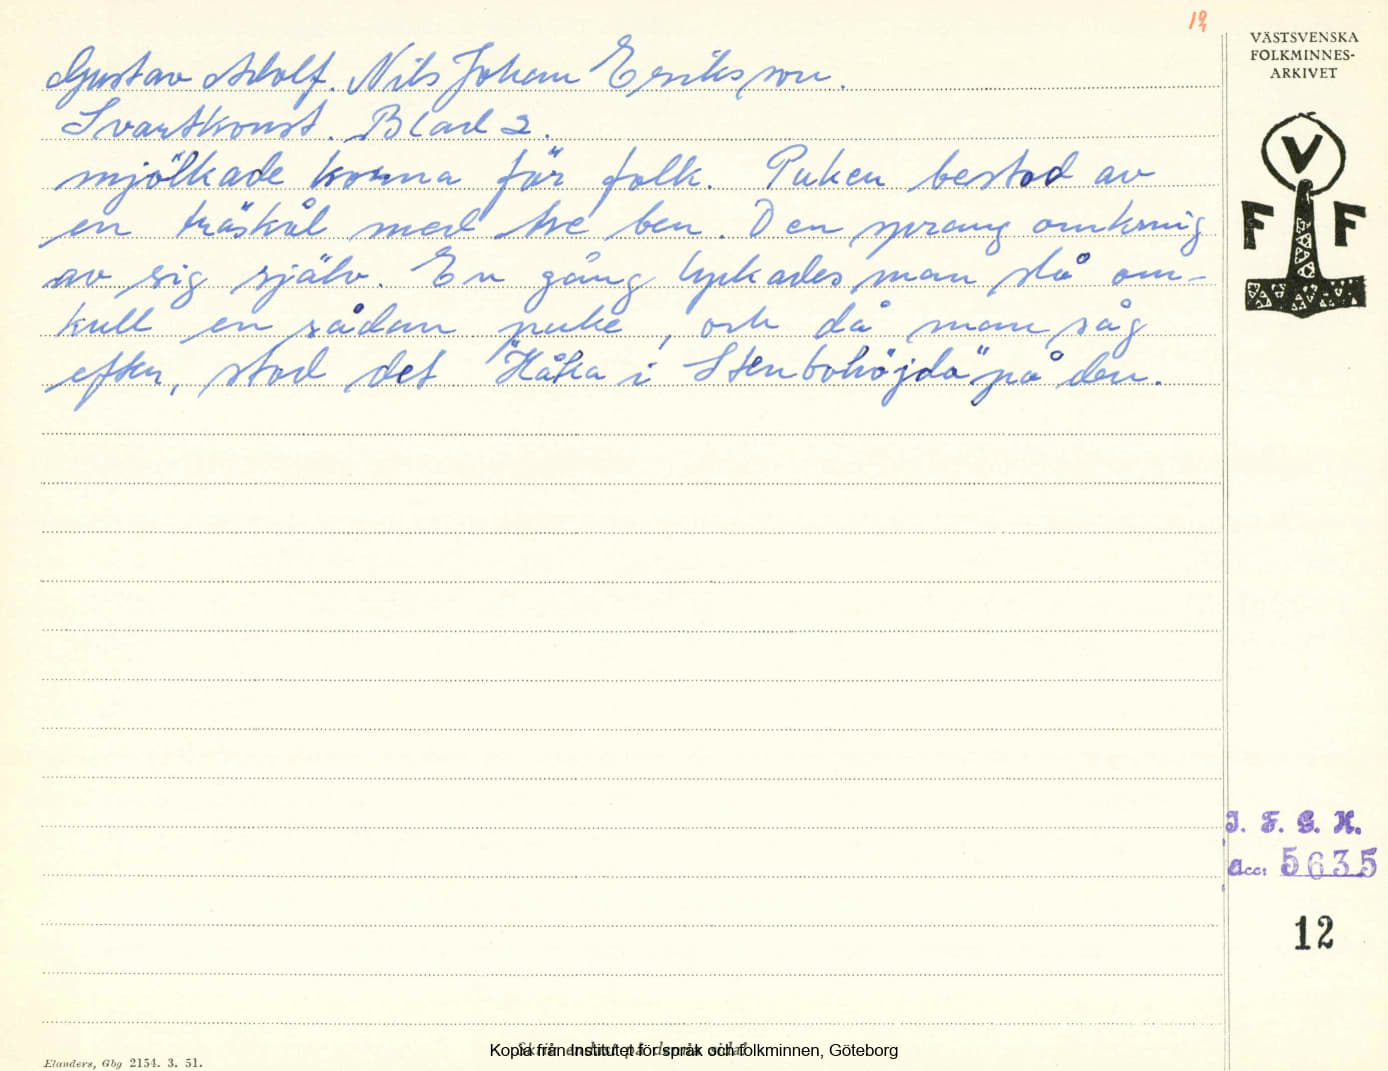 12
VÄSTSVENSKA
FOLKMINNES-
ARKIVET
V
F F
Gustav Adolf. Nils Johan Eriksson.
Svartkonst. Blad 2.
mjölkade korna för folk. Puken bestod av
en träskål med tre ben. Den sprang omkring
av sig själv. En gång lyckades man slå om-
kull en sådan puke, och då man såg
efter, stod det "Håka i Stenbohöjda" på den.
I. F. G. H.
Acc: 5635
12
Kopia från Institutet för språk och folkminnen, Göteborg
Elanders, Gbg 2154. 3. 51.